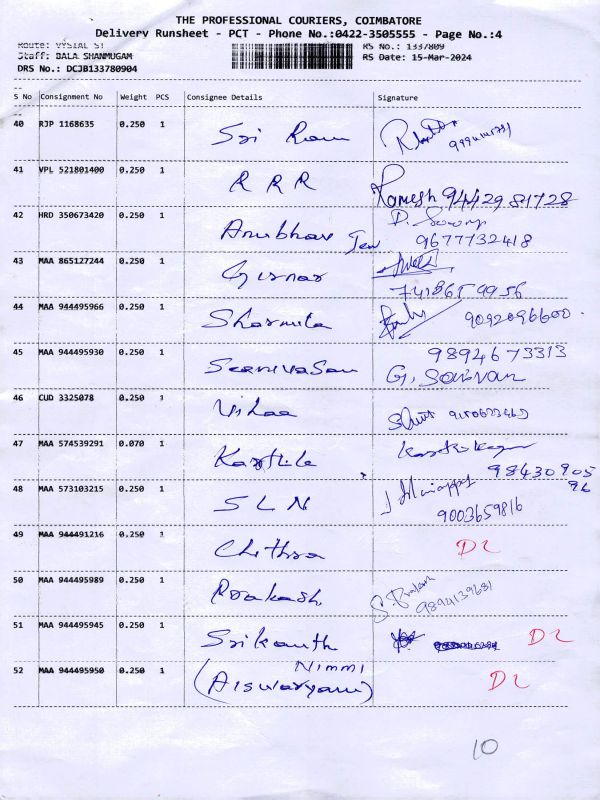 THE PROFESSIONAL COURIERS, COIMBATORE
Delivery Runsheet - PCT - Phone No.:0422-3505555 - Page No.:4
Route: VYSIAL ST RS No.: 1337809
Staff: BALA SHANMUGAM RS Date: 15-Mar-2024
DRS No.: DCJB133780904
S No Consignment No Weight PCS Consignee Details Signature
40 RJP 1168635 0.250 1 Sri Ram
41 VPL 521801400 0.250 1 R R R Ramesh 94429 81728
42 HRD 350673420 0.250 1 Anubhav Jew 9677732418
43 MAA 865127244 0.250 1 Girnar
44 MAA 944495966 0.250 1 Sharmila 9092096600
45 MAA 944495930 0.250 1 Seenivasan 9894673313
46 CUD 3325078 0.250 1
47 MAA 574539291 0.070 1 98430905
96
48 MAA 573103215 0.250 1 S L N 9003659816
49 MAA 944491216 0.250 1 Chithra D2
50 MAA 944495989 0.250 1 Prakash S. Prakash 9894139681
51 MAA 944495945 0.250 1 Srikanth D2
52 MAA 944495950 0.250 1 Nimmi D2
10